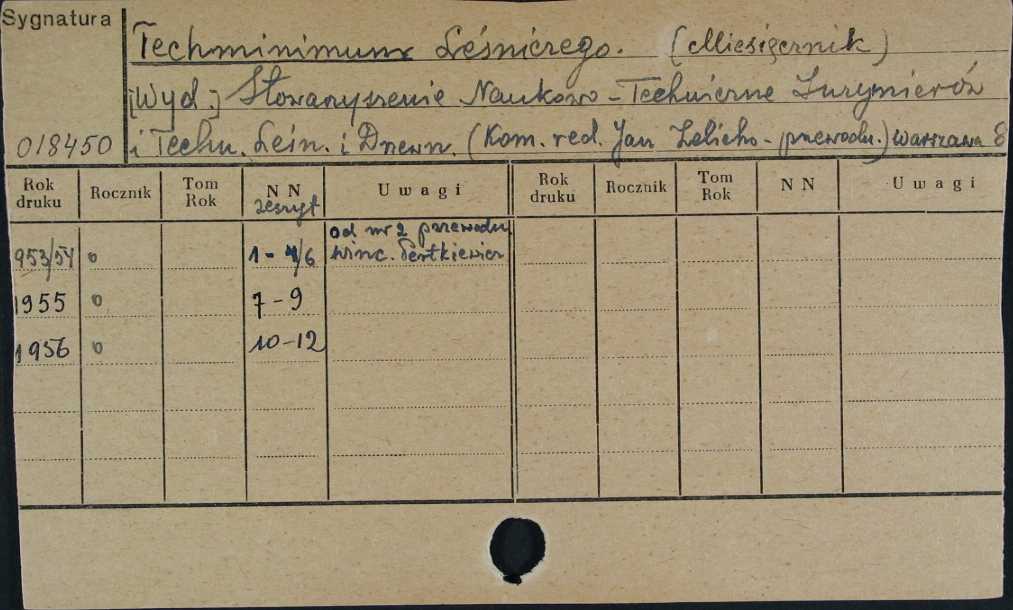 Sygnatura
Techminimum Leśniczego. (Miesięcznik)
[Wyd.] Stowarzyszenie Naukowo-Techniczne Inżynierów
018450 i Techn. Leśn. i Drzewn. (Kom. red. Jan Zelicho - przewodn.) Warszawa 8
Rok druku Rocznik Tom Rok NN zeszyt Uwagi Rok druku Rocznik Tom Rok NN Uwagi
od nr 2 przewodn.
953/54 o 1-4/6 Winc. Pertkiewicz
1955 o 7-9
1956 o 10-12